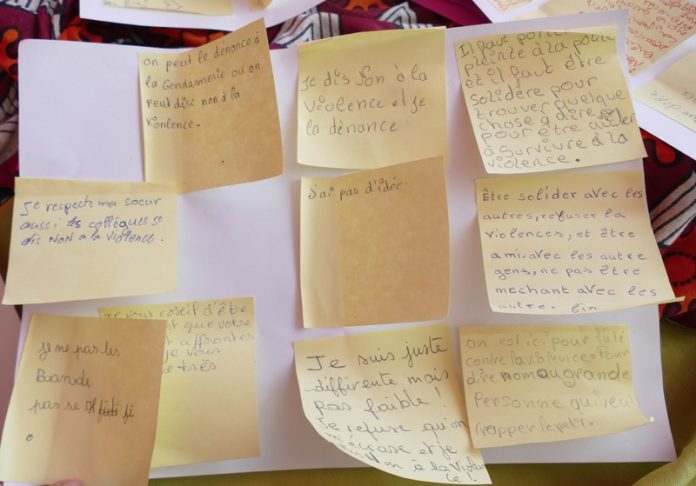 on peut le dénoncé à
la Gendarmerie ou on
peut dire non à la
violence.
Je dis Non à la
violence et je
la dénonce
Il faut porter
plainte à la police
et il faut être
solidère pour
trouver quelque
chose à faire
pour être aider
à survivre à la
violence.
Je respecte ma soeur
aussi les collègues je
dis NON à la violence.
J'ai pas d'idée.
Être solider avec les
autres, refuser la
violences, et être
ami, avec les autre
gens, ne pas être
mechant avec les
autre. fin
je ne pas les
pas se
vous d'être
que votre
affronter
je vous
très
Je suis juste
différente mais
pas faible!
Je refuse qu'on
m'écrase et je
dis Non à la violence
on est ici pour
contre la violence. Pour
dire nom au grande
Personne qui veut
frapper